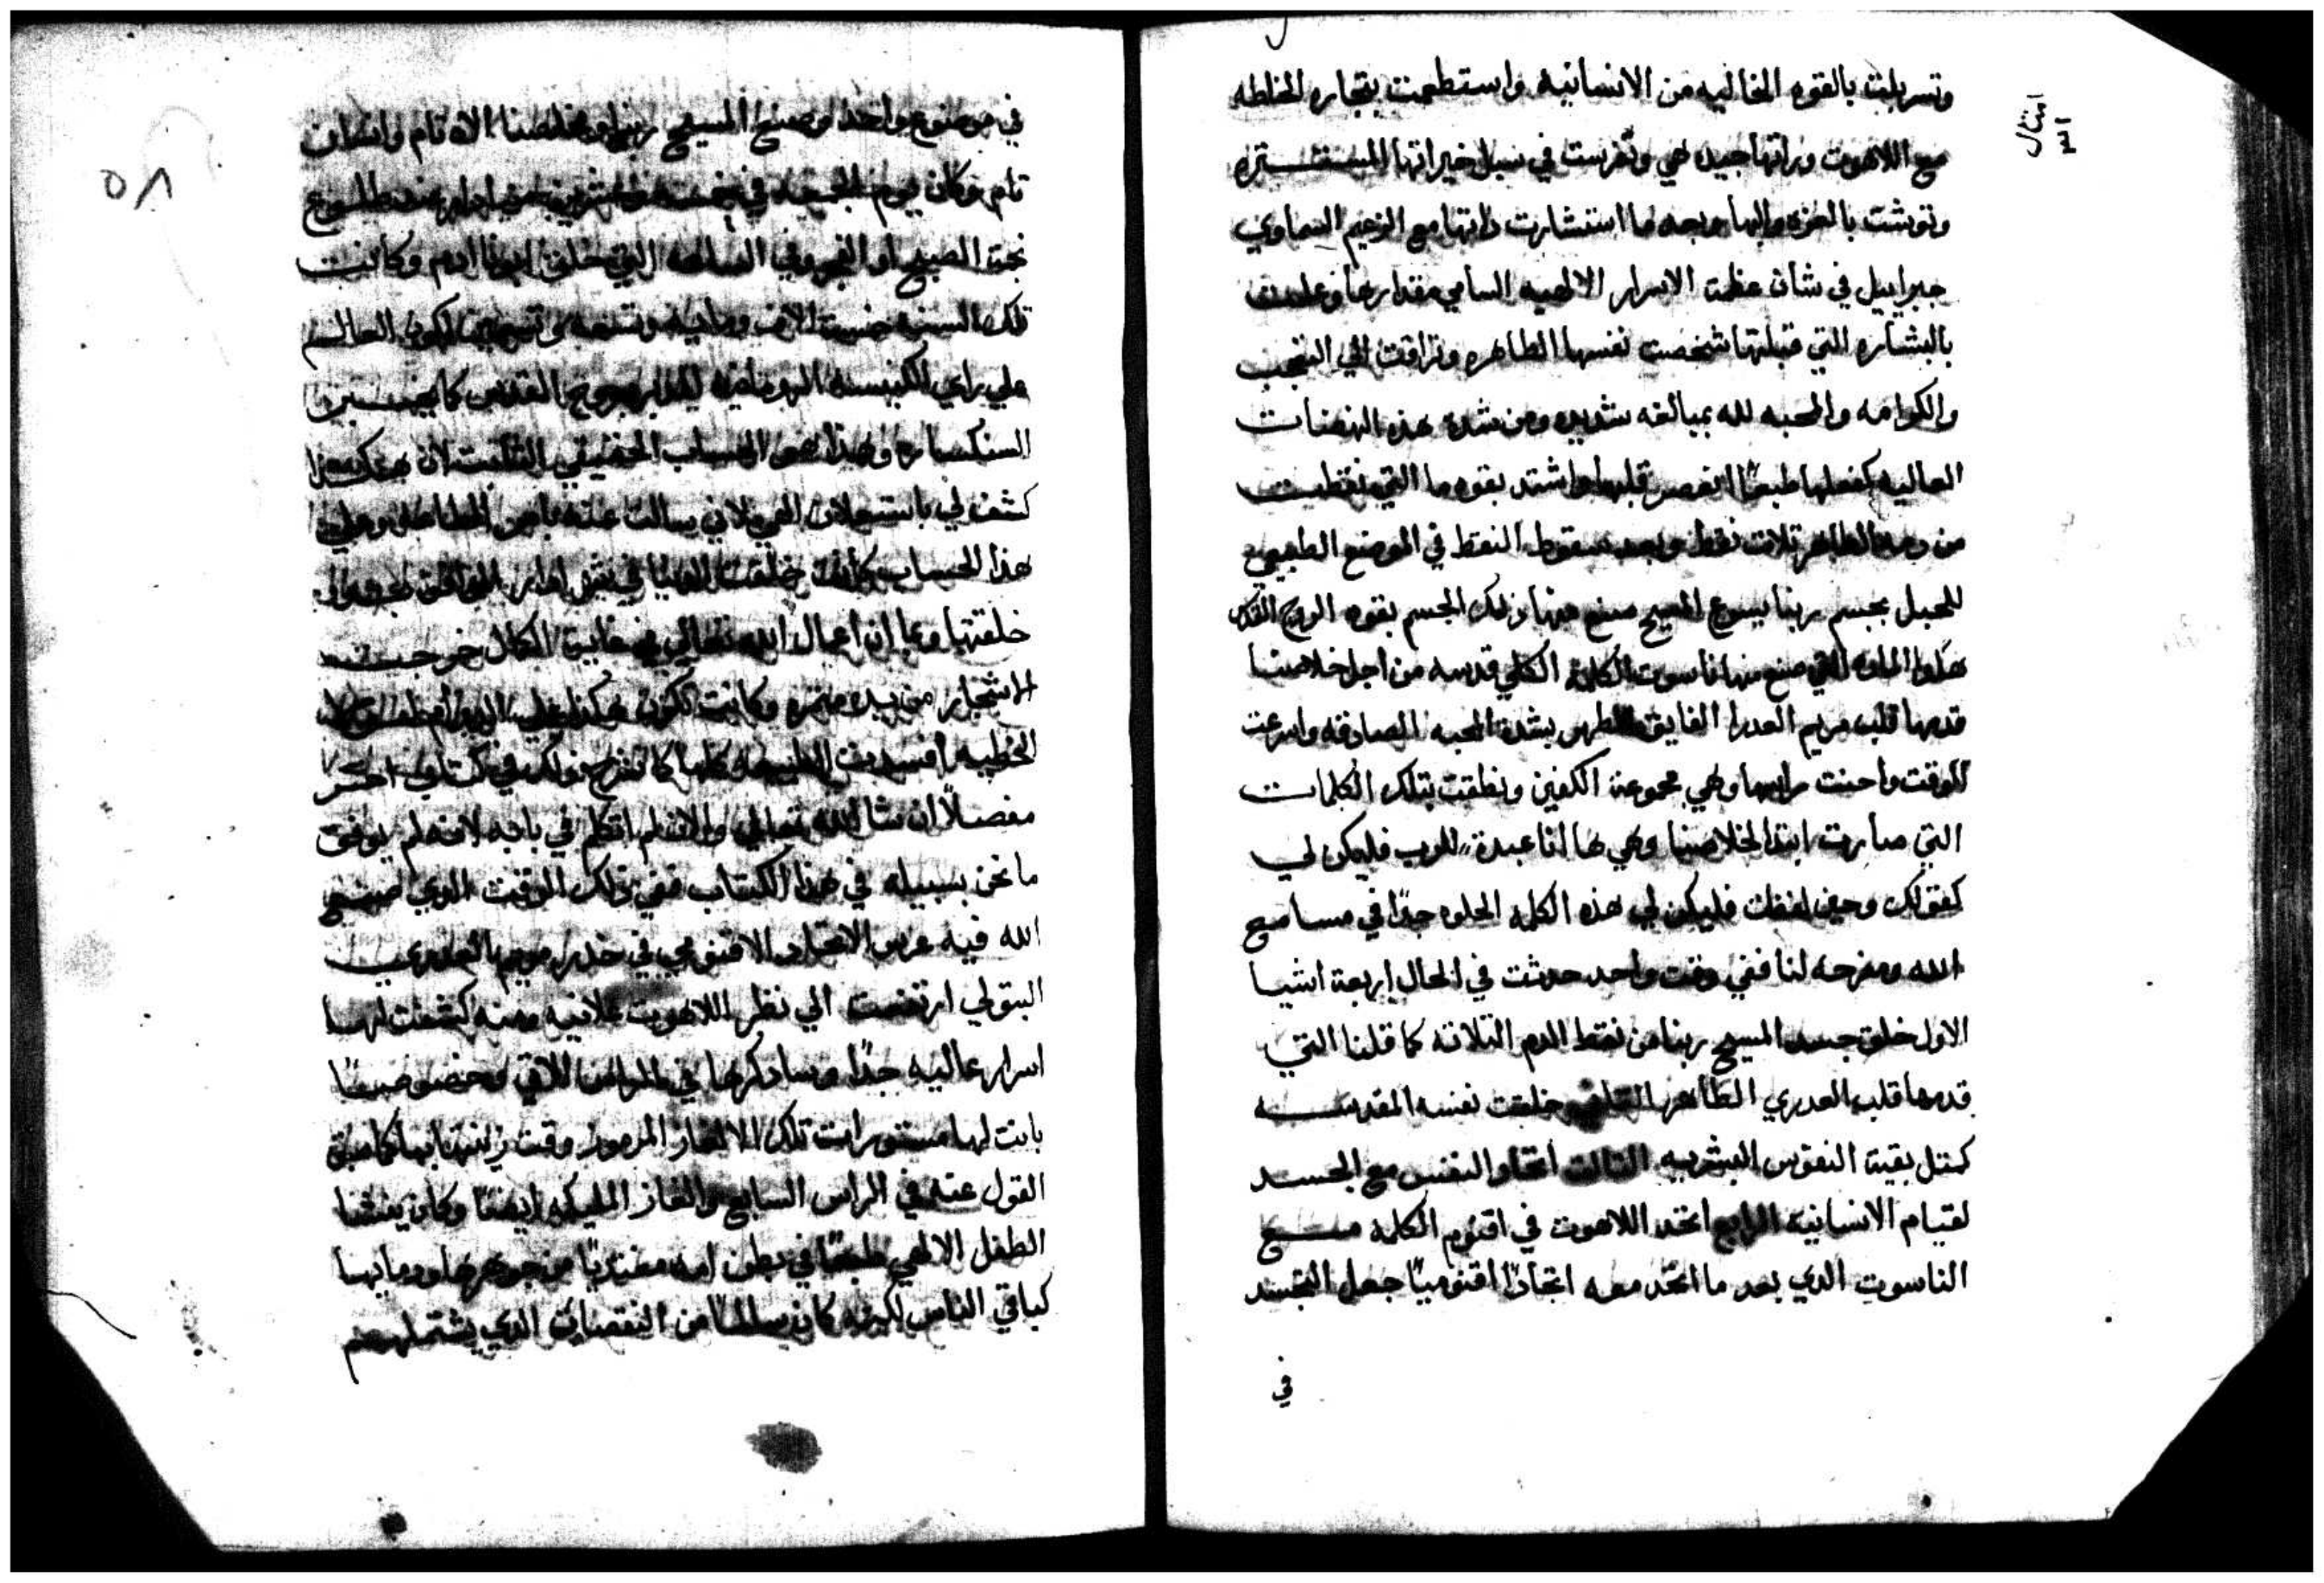 وتسربلت بالقوه المخاليه من الانسانيه واستطعمت بتجاره المخلطه
امثال
٣١
مع اللاهوت وراتها جيده هي وتفرست في سبل خيراتها المستتره
وتوشت بالعزه والبها وبعد ما استشارت داتها مع الزعيم السماوي
جبراييل في شان عظمة الاسرار الالهيه السامي مقدارها وعلمت
بالبشاره التي قبلتها شخصت نفسها الطاهره وتراقت الي التعجب
والكرامه والمحبه لله بمبالغه شديده ومن شدة هذه النهضات
العاليه كفعلها طبعًا انعصر قلبها واشتد بقوه ما التي نقطت
من دمه الطاهر تلات نقط وبعد سقوط النقط في الموضع الطبيعي
للحبل بجسم ربنا يسوع المسيح صنع منها ذلك الجسم بقوه الروح القدس
هكذا الماده التي صنع منها ناسوت الكلمه الكلي قدسه من اجل خلاصنا
قدمها قلب مريم العدرا الفايق الطهر بشدة المحبه الصادقه واسرعت
للوقت واحنت راسها وهي مجموعة الكفين ونطقت بتلك الكلمات
التي صارت ابتدا لخلاصنا وهي ها انا عبدة للرب فليكن لي
كقولك وحين لفظت فليكن لي هذه الكلمه الحلوه جدًا في مسامع
الله ومفرحه لنا ففي وقت واحد حدثت في الحال اربعة اشيا
الاول خلق جسد المسيح ربنا من نقط الدم التلاته كما قلنا التي
قدمها قلب العدري الطاهر التاني خلقت نفسه المقدسه
كمتل بقية النفوس البشريه التالت اتحاد النفس مع الجسد
لقيام الانسانيه الرابع اتحد اللاهوت في اقنوم الكلمه مع
الناسوت الدي بعد ما اتحد معه اتحادًا اقنوميًا جعل التجسد
في
٥٨
في موضوع واحد وصنع المسيح ربنا ومخلصنا الاه تام وانسان
تام وكان يوم الجمعه في خمسه وعشرين من ادار عند طلوع
نجمة الصبح او الفجر وفي الساعه التي خلق ابونا ادم وكانت
تلك السنه خمسة الاف وماية وتسعه وتسعين لكون العالم
علي راي الكنيسه الرومانيه المدبره بروح القدس كما يخبر
السنكسار وهذا هو الحساب الحقيقي التابت لان هكذا
كشف لي باستعلان لاني سالت عنه بامر الطاعه وعلي
هذا الحساب كانت خلقت الدنيا في شهر ادار الموافق
خلقتها وبما ان اعمال الله تعالي في غاية الكمال خرجت
الاشجار من يده متمره وكانت تكون هكذا علي الدوام لولا
الخطيه افسدت الطبيعه كلها كما نشرح ذلك في كتاب اخر
مفصلًا ان شا الله تعالي والان لم اتكلم في بابه لانه لم يوافق
ما نحن بسبيله في هذا الكتاب ففي ذلك الوقت الدي صنع
الله فيه عرس الاتحاد الاقنومي في خدر مريم العدري
البتولي ارتفعت الي نظر اللاهوت علانيه ومنه كشفت لها
اسرار عاليه جدًا وسادكرها في الراس الاتي وخصوصًا
بانت لها مستورات تلك الالغاز المرموز وقت زينتها بها كما سبق
القول عنه في الراس السابع والغاز المليكه ايضًا وكان ينشا
الطفل الالهي طبعًا في بطن امه مغتديًا من جوهرها ودمايها
كباقي الناس لكنه كان سالمًا من النقصان الدي يشتملهم